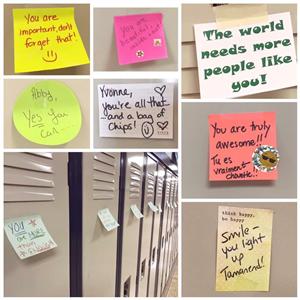 You are
important, don't
forget that!
You are
beautiful
The world
needs more
people like
you!
Abby,
Yes You
Can
Yvonne,
you're all that
and a bag of
Chips!
You are truly
awesome!!
Tu es
vraiment
You
think happy,
be happy
Smile-
you light
up
Tamanend!